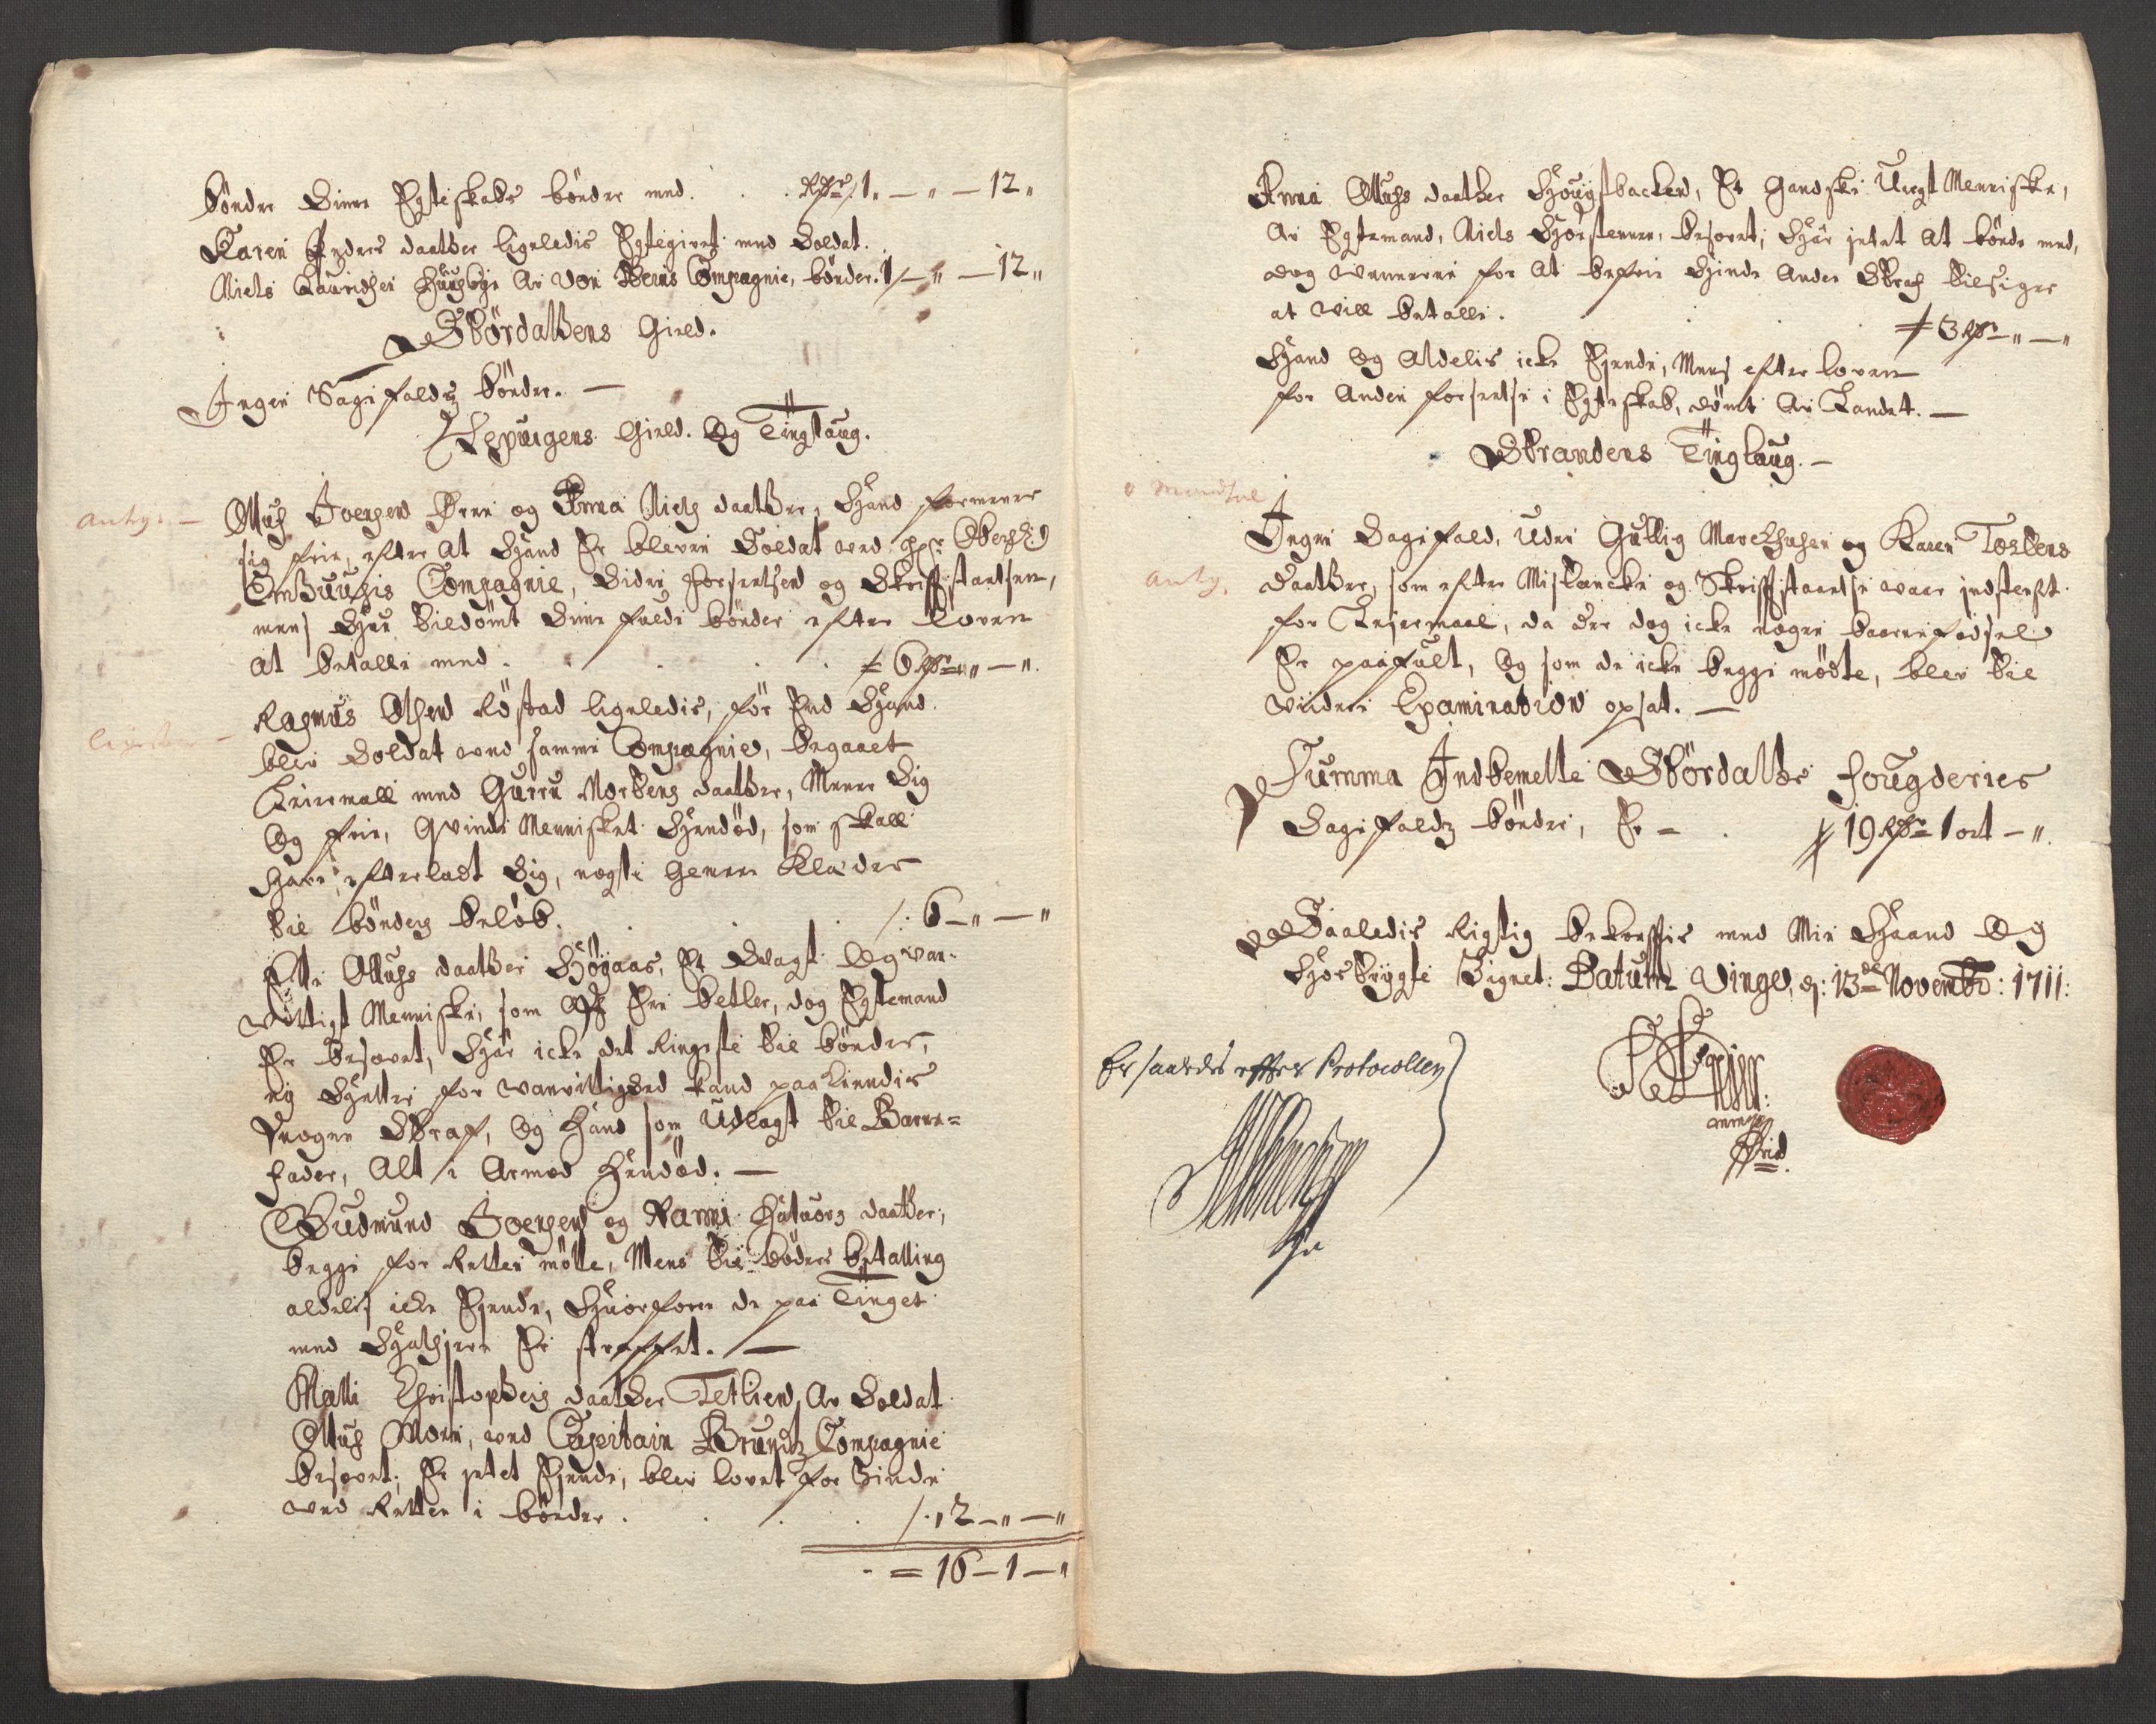 bönder Sinne Egteskabs bönder med . . . Rdr 1. — " — 12 "
Karen Anders daatther ligeledis Egtegivet med Soldat
Niels Lauridsen Huusbye Av Von Steins Compagnie, bönder. 1 — " — 12 "
Stördallens Gield.
Ingen Sagefalds bönder. —
Lexvigens Gield. Og Tinglaug.
Anty: — Oluf Joensen Ørre og Anna Niels daatther, Hand formener
sig frie, efter At Hand Er bleven Soldat ved Hr Oberst L
Compagnie, Siden forseelsen og Skriftstaaelsen,
mens Hun tildömt Sine fulde bönder efter Loven
At betalle med . . . . . = 6 Rdr " — ".
Rasmus Olsen Röstad ligeledis, för End Hand
blev Soldat ved samme Compagnie, begaaet
Leiermall med Gurru Mortens daatther, Mener Sig
Og frie, Qvinde Mennisket Hendöd, som skall
Have efterladt Sig, nogle Gemene Klæder
til bönders belöb. . . . /: 6 — " — "
Olufs daatther Höyaas, Et Svagt Og van-
vittigt Menniske, som Er betler, dog Egtemand
Er besovet, Har icke det Ringeste til bönder,
ey Heller for vanvittighed kand paakiendis
Nogen Straf, Og Hand som Udlagt til Barne-
fader, Alt i Armod Hendöd. —
Gudmund Joensen og daatther,
begge for Retten mötte, Mens til böders betalling
aldelis icke Eyende, Huorfore de paa Tinget
med Halsjern Er straffet. —
Malli Christophers daatther Tetlien, Av Soldat
Oluf Moen, ved Capitain Brunds Compagnie
besovet, Er intet Eyende, blev lovet for Hinde
ved Retten i bönder . . . . /. " 2 — " — "
= 16 — 1 — "
Anna Olufs daatther Houghbacken, Et Gandske Ungt Menniske,
Av Egtemand, Niels besovet, Har intet At böde med,
dog vennerne for At befrie Hinde Anden Straf tilsiger
at vill betalle. . . . 3 Rdr " — "
Hand Og Aldelis icke Eyende, Mens efter Loven
for Anden forseelse i Egteskab, dömt Av Landet. —
Strandens Tinglaug. —
Ingen Sagefald, Uden Gullig Marchhusen og Karen Tostens
Anty. daatther, som efter Mistancke og Skriftstaaelse vaar indstefnt
for Leiermaal, da der dog icke nogen baarnefödsel
Er paafult, Og som de icke begge mödte, blev til
videre Examination opsat. —
Summa Indbemelte Stördalls fougderies
Sagefalds bönder, Er = . 19 Rdr 1 ort — ".
Saaledis Rigtig bekreftis med Min Haand Og
Hostrygte Signet: Datum Vinge, d: 13de Novembr: 1711:
Er saaledes effter Protocollen